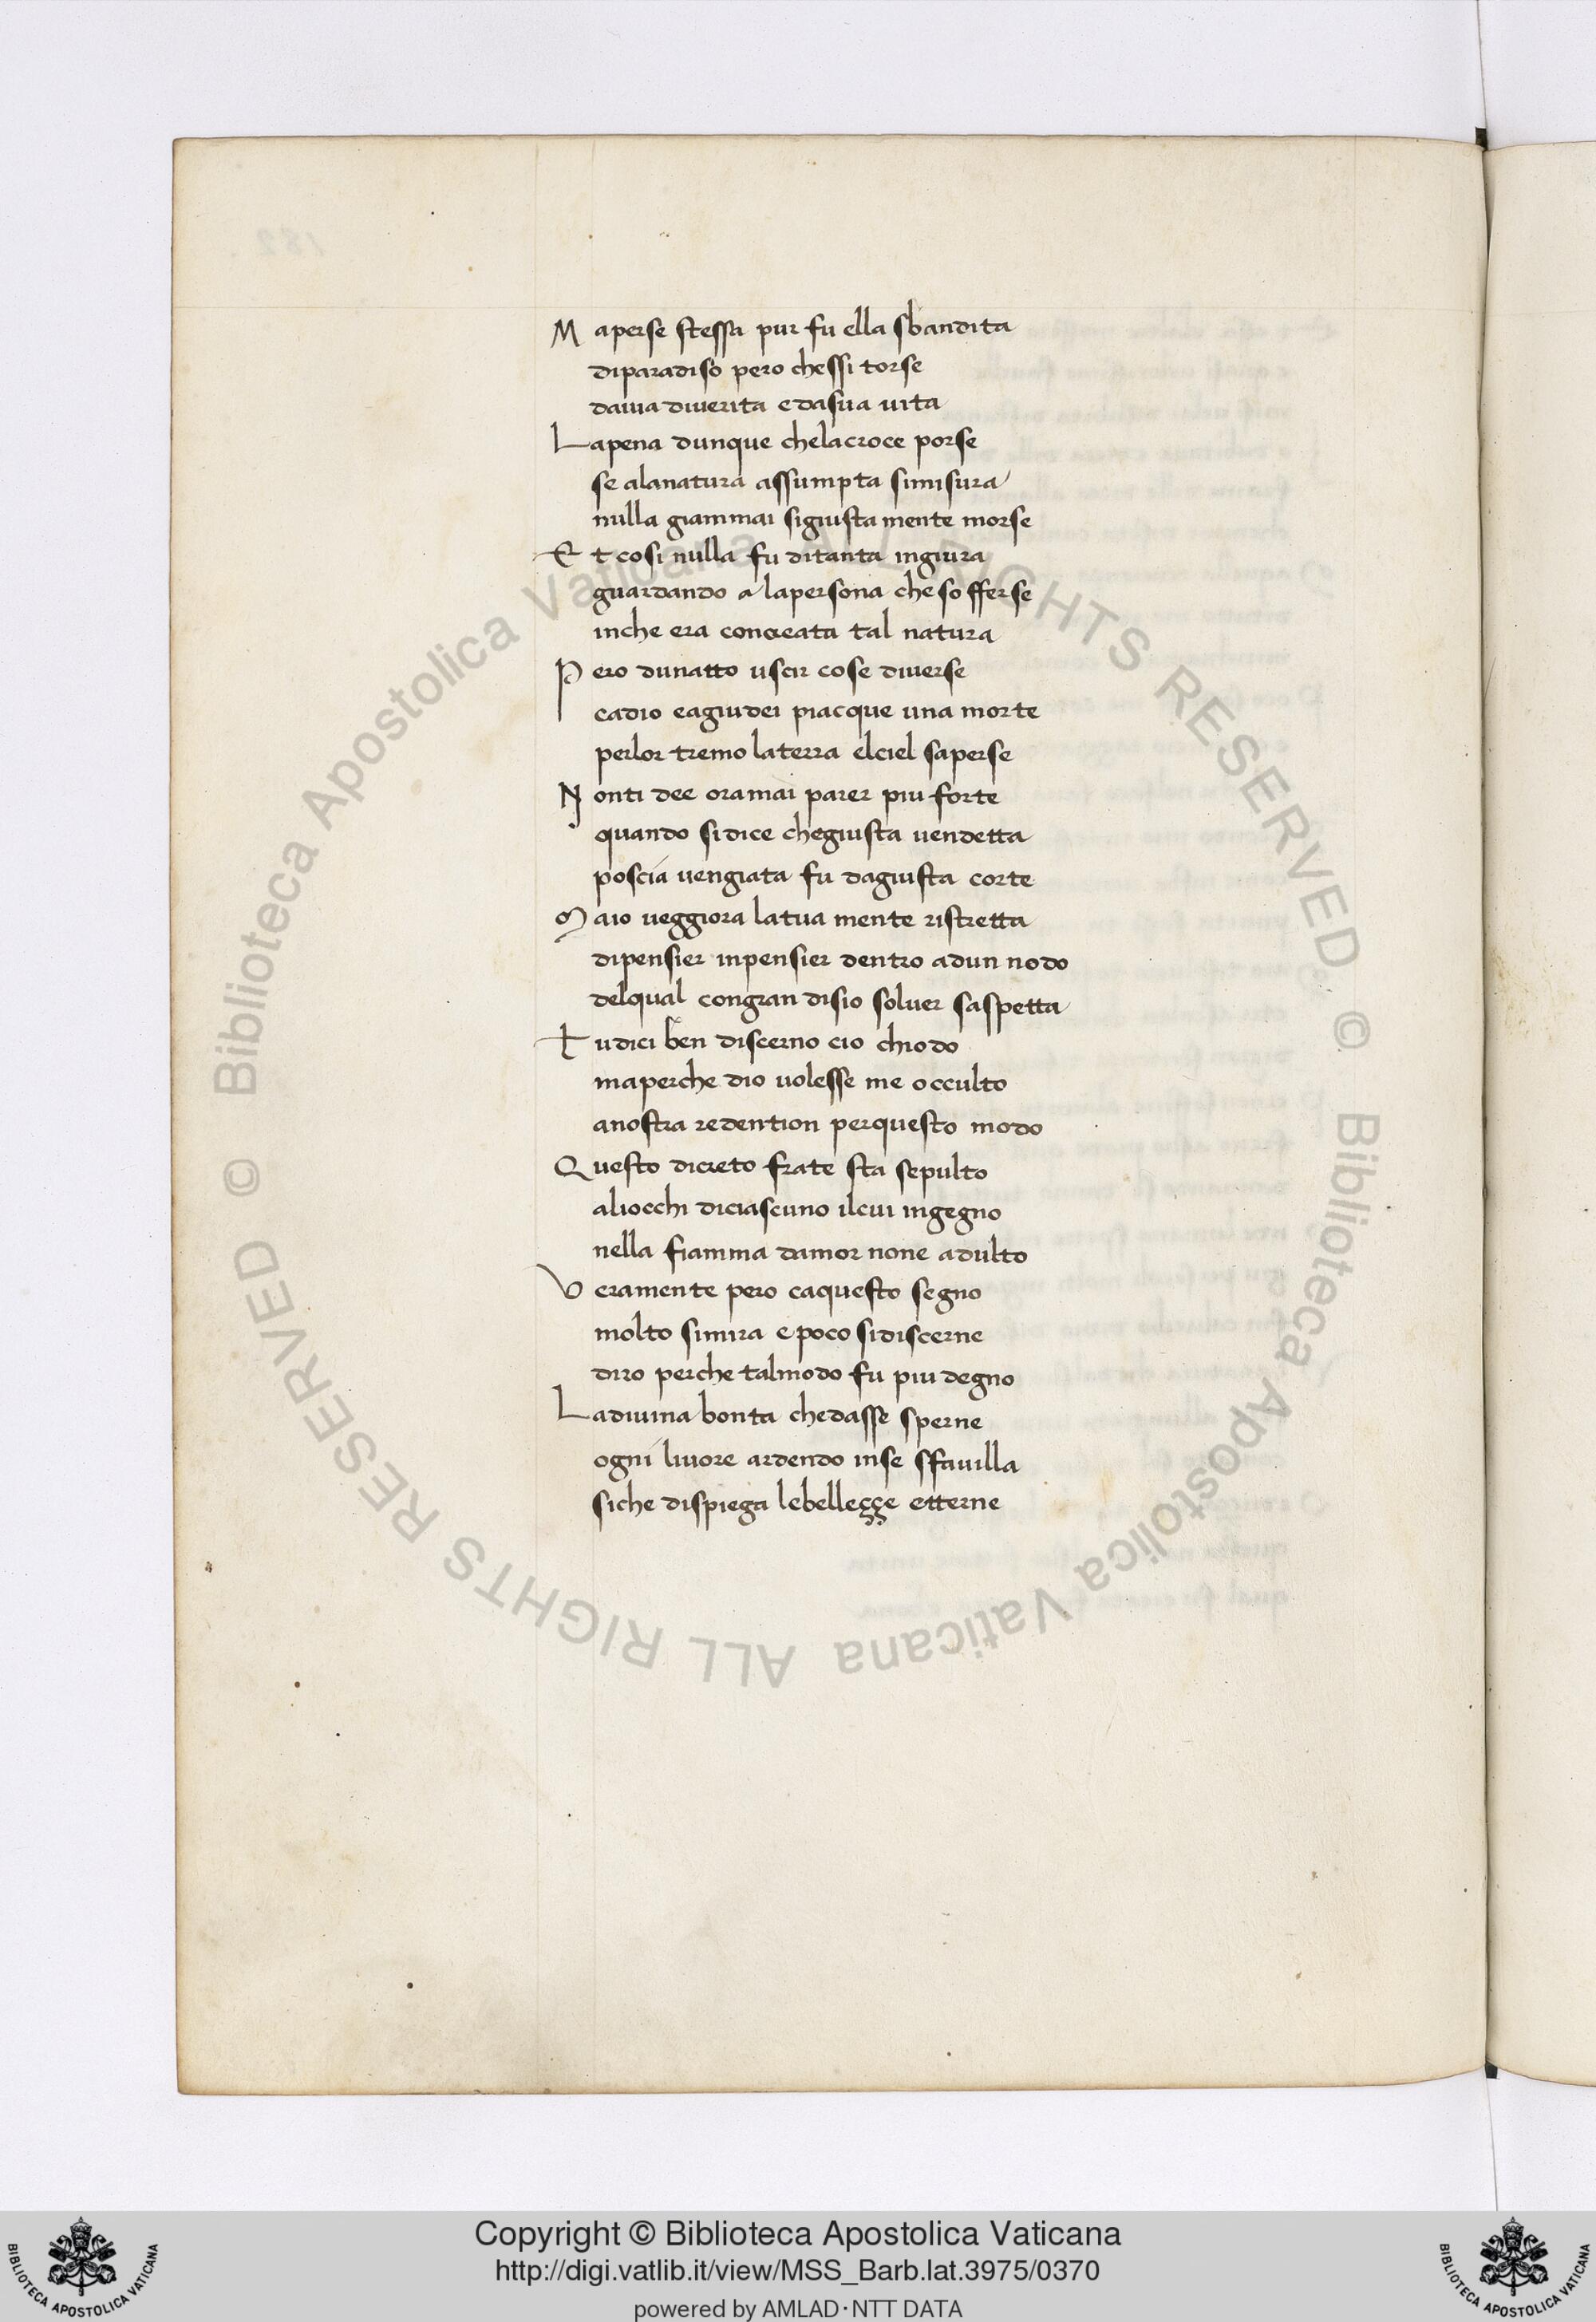 M aperse stessa pur fu ella sbandita
diparadiso pero chessi torse
dauia diuerita edasua uita
Lapena dunque chelacroce porse
se alanatura assumpta simisura
nulla giammai sigiusta mente morse
E t cosi nulla fu ditanta ingiura
guardando a lapersona che sofferse
inche era concreata tal natura
P ero dunatto uscir cose diuerse
cadio eagiudei piacque una morte
perlor tremo laterra elciel saperse
N onti dee oramai parer piu forte
quando sidice chegiusta uendetta
poscia uengiata fu dagiusta corte
M aio ueggiora latua mente ristretta
dipensier inpensier dentro adun nodo
delqual congran disio soluer saspetta
T udici ben discerno cio chiodo
maperche dio uolesse me occulto
anostra redention perquesto modo
Questo dicreto frate sta sepulto
aliocchi diciascuno ilcui ingegno
nella fiamma damor none adulto
V eramente pero caquesto segno
molto simira e poco sidiscerne
diro perche talmodo fu piu degno
Ladiuina bonta chedasse sperne
ogni liuore ardendo inse sfauilla
siche dispiega lebelleççe etterne
Biblioteca Apostolica Vaticana ALL RIGHTS RESERVED ©
Biblioteca Apostolica Vaticana ALL RIGHTS RESERVED ©
BIBLIOTECA APOSTOLICA VATICANA
Copyright © Biblioteca Apostolica Vaticana
http://digi.vatlib.it/view/MSS_Barb.lat.3975/0370
powered by AMLAD·NTT DATA
BIBLIOTECA APOSTOLICA VATICANA